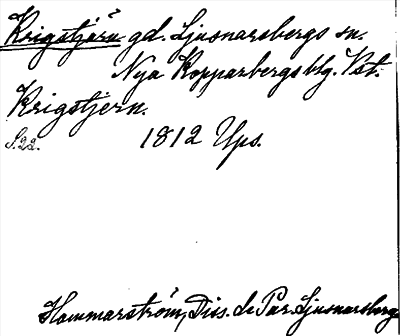 Krigstjärn gd. Ljusnarsbergs sn.
Nya Kopparbergs blg. Vst.
Krigstjern.
S.22. 1812 Ups.
Hammarström, Diss. de Par. Ljusnarsberg